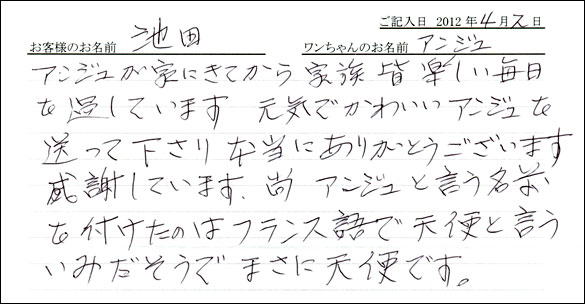 ご記入日 2012年4月2日
お客様のお名前 池田 ワンちゃんのお名前 アンジュ
アンジュが家にきてから 家族皆楽しい毎日
を過しています 元気でかわいいアンジュを
送って下さり 本当にありがとうございます
感謝しています、尚 アンジュと言う名前
を付けたのはフランス語で天使と言う
いみだそうで まさに天使です。